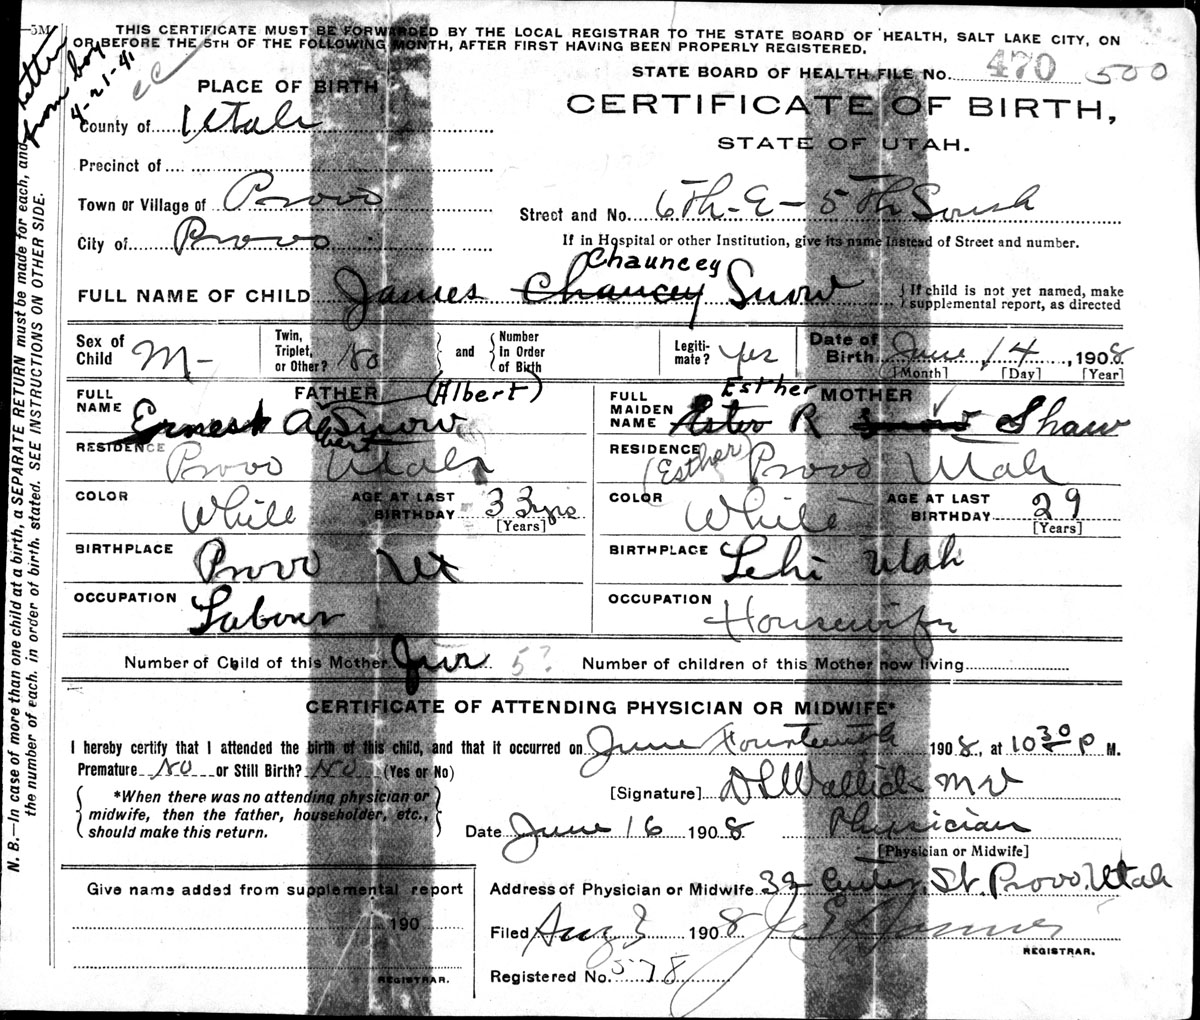 THIS CERTIFICATE MUST BE FORWARDED BY THE LOCAL REGISTRAR TO THE STATE BOARD OF HEALTH, SALT LAKE CITY, ON
OR BEFORE THE 5TH OF THE FOLLOWING MONTH, AFTER FIRST HAVING BEEN PROPERLY REGISTERED.
letter from boy
4-21-41
STATE BOARD OF HEALTH FILE No. 470 500
PLACE OF BIRTH
CERTIFICATE OF BIRTH,
County of Utah
STATE OF UTAH.
Precinct of
Town or Village of Provo
Street and No. 6Th-E-5Th South
City of Provo
If in Hospital or other Institution, give its name instead of Street and number.
Chauncey
FULL NAME OF CHILD James Chaucey Snow
{If child is not yet named, make
supplemental report, as directed
Sex of Child M-
Twin, Triplet, or Other? No
and
Number In Order of Birth
Legiti-mate? Yes
Date of Birth June 14, 1908
[Month] [Day] [Year]
FATHER (Albert)
FULL NAME Ernest A Snow
bert
RESIDENCE Provo Utah
COLOR White
AGE AT LAST BIRTHDAY 33 yrs
[Years]
BIRTHPLACE Provo Ut
OCCUPATION Labour
Esther MOTHER
FULL MAIDEN NAME Ester R Snow Shaw
RESIDENCE Provo Utah
(Esther)
COLOR White
AGE AT LAST BIRTHDAY 29
[Years]
BIRTHPLACE Lehi Utah
OCCUPATION Housewife
Number of Child of this Mother 5? Number of children of this Mother now living
CERTIFICATE OF ATTENDING PHYSICIAN OR MIDWIFE*
I hereby certify that I attended the birth of this child, and that it occurred on June Fourteenth 1908, at 10 30 P M.
Premature No or Still Birth? No (Yes or No)
*When there was no attending physician or
midwife, then the father, householder, etc.,
should make this return.
[Signature]
Date June 16 1908 Physician
[Physician or Midwife]
Address of Physician or Midwife 32 Center St. Provo, Utah
Filed Aug 3 1908
REGISTRAR.
Registered No. 578
Give name added from supplemental report
190
REGISTRAR.
N. B.—In case of more than one child at a birth, a SEPARATE RETURN must be made for each, and
the number of each, in order of birth, stated. SEE INSTRUCTIONS ON OTHER SIDE.